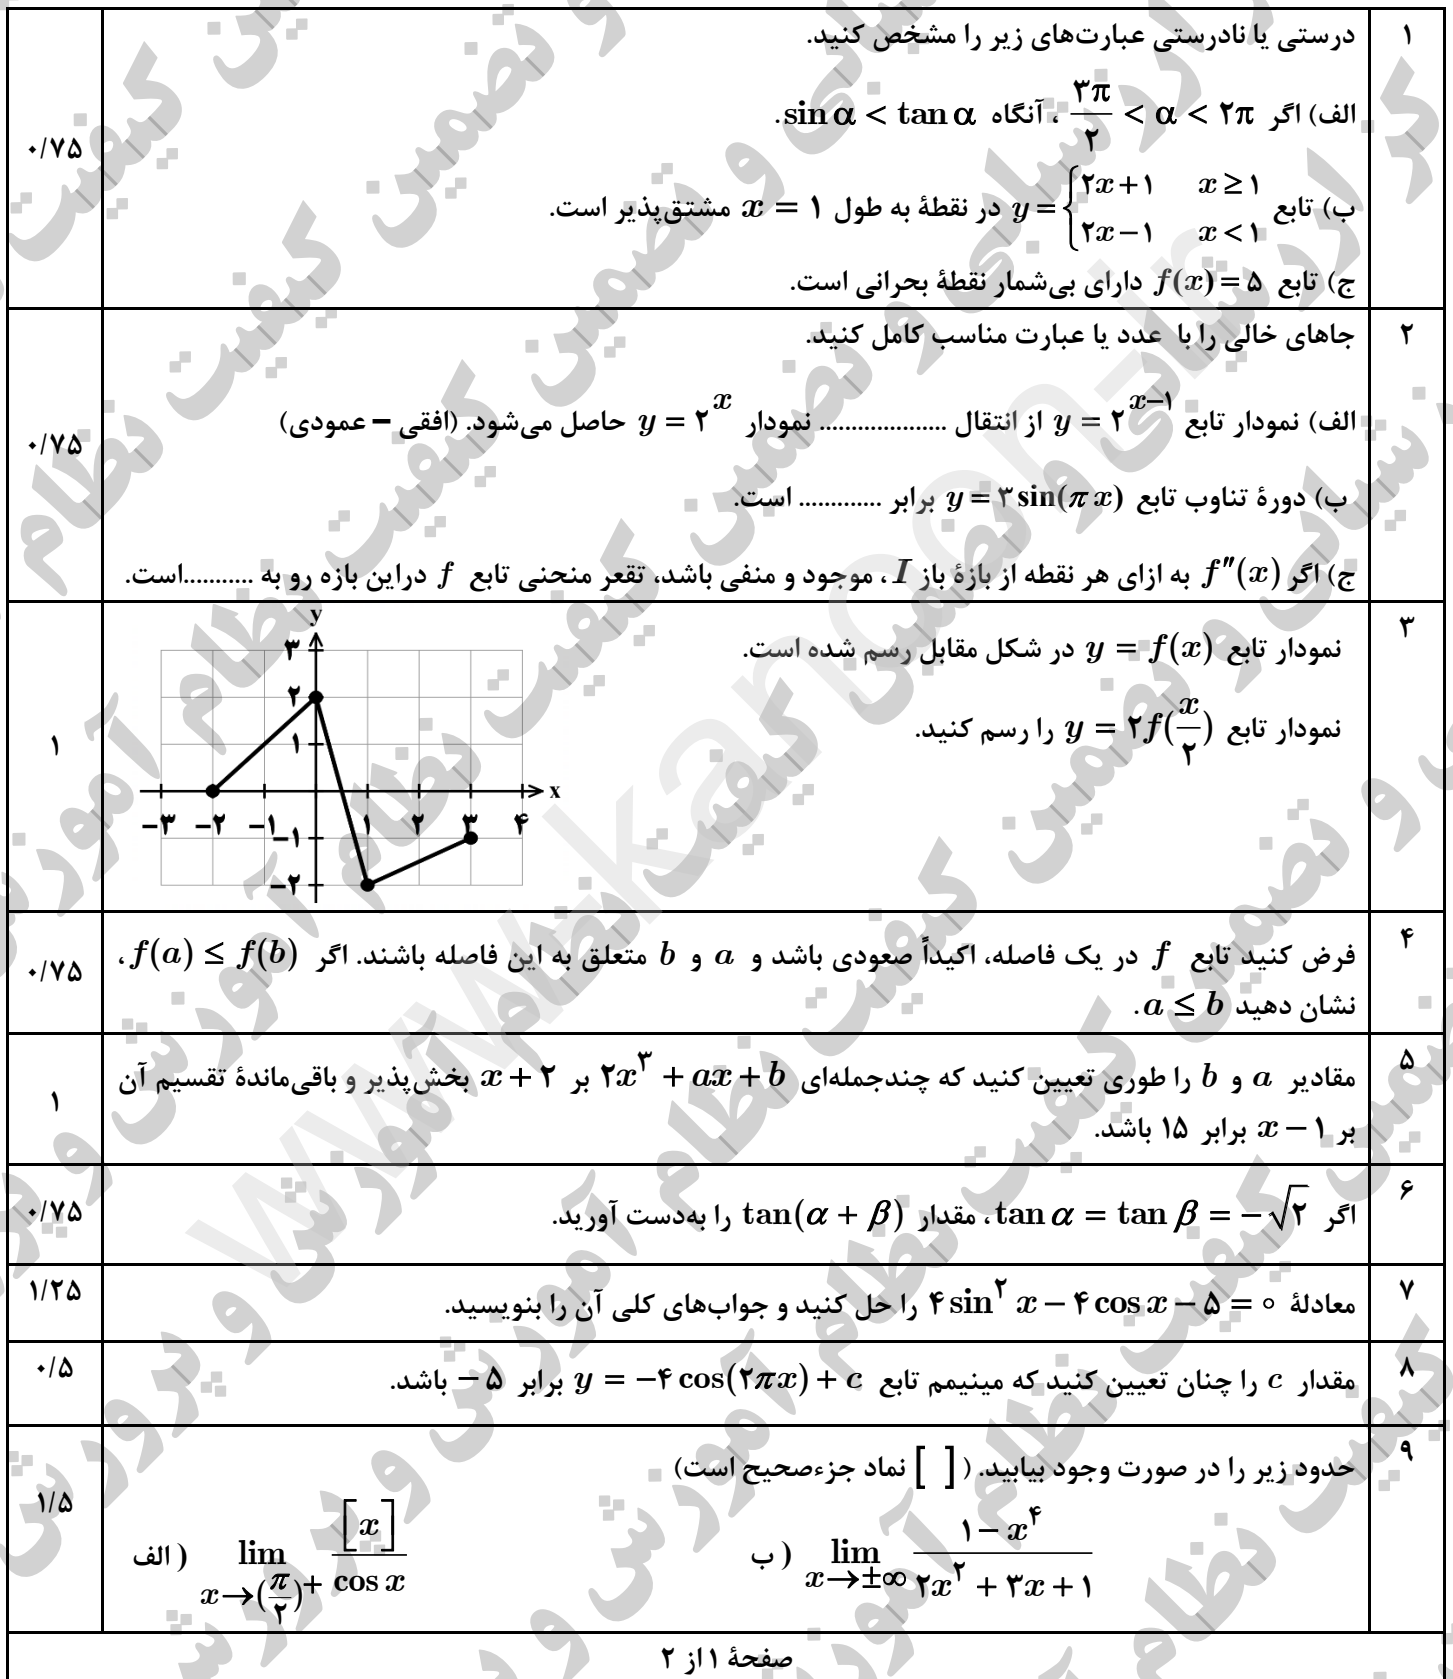 ۱
درستی یا نادرستی عبارت‌های زیر را مشخص کنید.
الف) اگر ۳π/۲ < α < ۲π ، آنگاه sin α < tan α.
ب) تابع y = { ۲x+۱  x ≥ ۱ ; ۲x−۱  x < ۱ در نقطهٔ به طول x = ۱ مشتق‌پذیر است.
ج) تابع f(x) = ۵ دارای بی‌شمار نقطهٔ بحرانی است.
۰/۷۵
۲
جاهای خالی را با عدد یا عبارت مناسب کامل کنید.
الف) نمودار تابع y = ۲^(x−۱) از انتقال .................... نمودار y = ۲^x حاصل می‌شود. (افقی – عمودی)
ب) دورهٔ تناوب تابع y = ۳ sin(πx) برابر ............. است.
ج) اگر f″(x) به ازای هر نقطه از بازهٔ باز I ، موجود و منفی باشد، تقعر منحنی تابع f دراین بازه رو به ...........است.
۰/۷۵
۳
نمودار تابع y = f(x) در شکل مقابل رسم شده است.
نمودار تابع y = ۲f(x/۲) را رسم کنید.
y
۳
۲
۱
x
−۳ −۲ −۱ ۱ ۲ ۳ ۴
−۱
−۲
۱
۴
فرض کنید تابع f در یک فاصله، اکیداً صعودی باشد و a و b متعلق به این فاصله باشند. اگر f(a) ≤ f(b) ،
نشان دهید a ≤ b .
۰/۷۵
۵
مقادیر a و b را طوری تعیین کنید که چندجمله‌ای ۲x³ + ax + b بر x + ۲ بخش‌پذیر و باقی‌ماندهٔ تقسیم آن
بر x − ۱ برابر ۱۵ باشد.
۱
۶
اگر tan α = tan β = −√۲ ، مقدار tan(α + β) را به‌دست آورید.
۰/۷۵
۷
معادلهٔ ۴ sin² x − ۴ cos x − ۵ = ۰ را حل کنید و جواب‌های کلی آن را بنویسید.
۱/۲۵
۸
مقدار c را چنان تعیین کنید که مینیمم تابع y = −۴ cos(۲πx) + c برابر −۵ باشد.
۰/۵
۹
حدود زیر را در صورت وجود بیابید. ( [ ] نماد جزءصحیح است)
الف) lim x→(π/۲)⁺ [x]/cos x
ب) lim x→±∞ (۱ − x⁴)/(۲x² + ۳x + ۱)
۱/۵
صفحهٔ ۱ از ۲